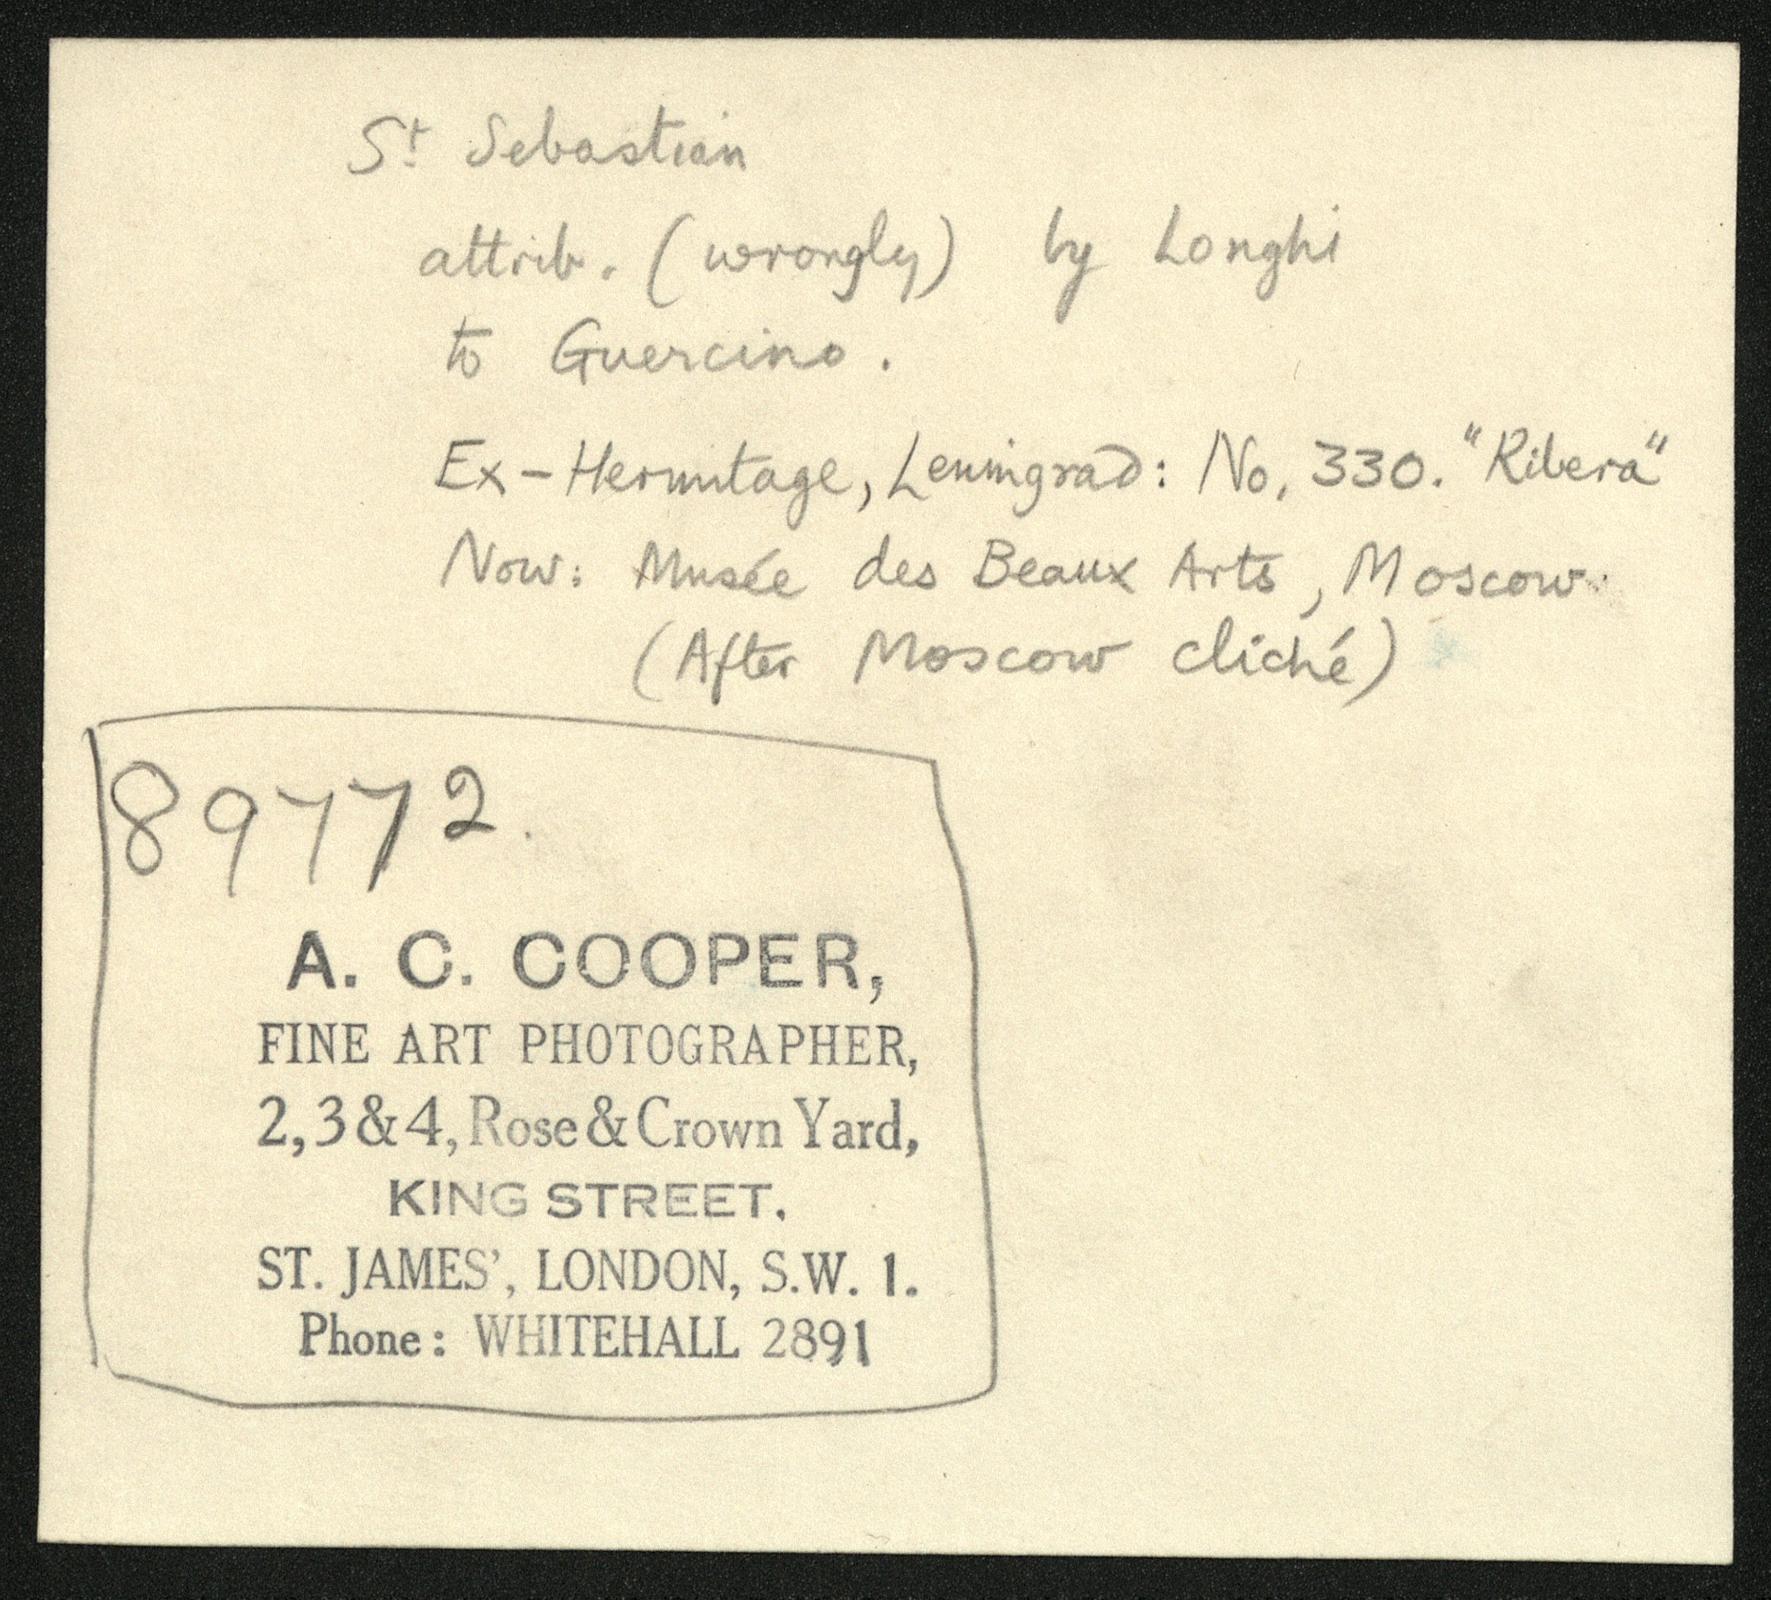 St Sebastian
attrib. (wrongly) by Longhi
to Guercino.
Ex-Hermitage, Leningrad: No. 330. "Ribera"
Now: Musée des Beaux Arts, Moscow.
(After Moscow cliché)
89772.
A. C. COOPER,
FINE ART PHOTOGRAPHER,
2, 3 & 4, Rose & Crown Yard,
KING STREET.
ST. JAMES', LONDON, S.W. 1.
Phone: WHITEHALL 2891